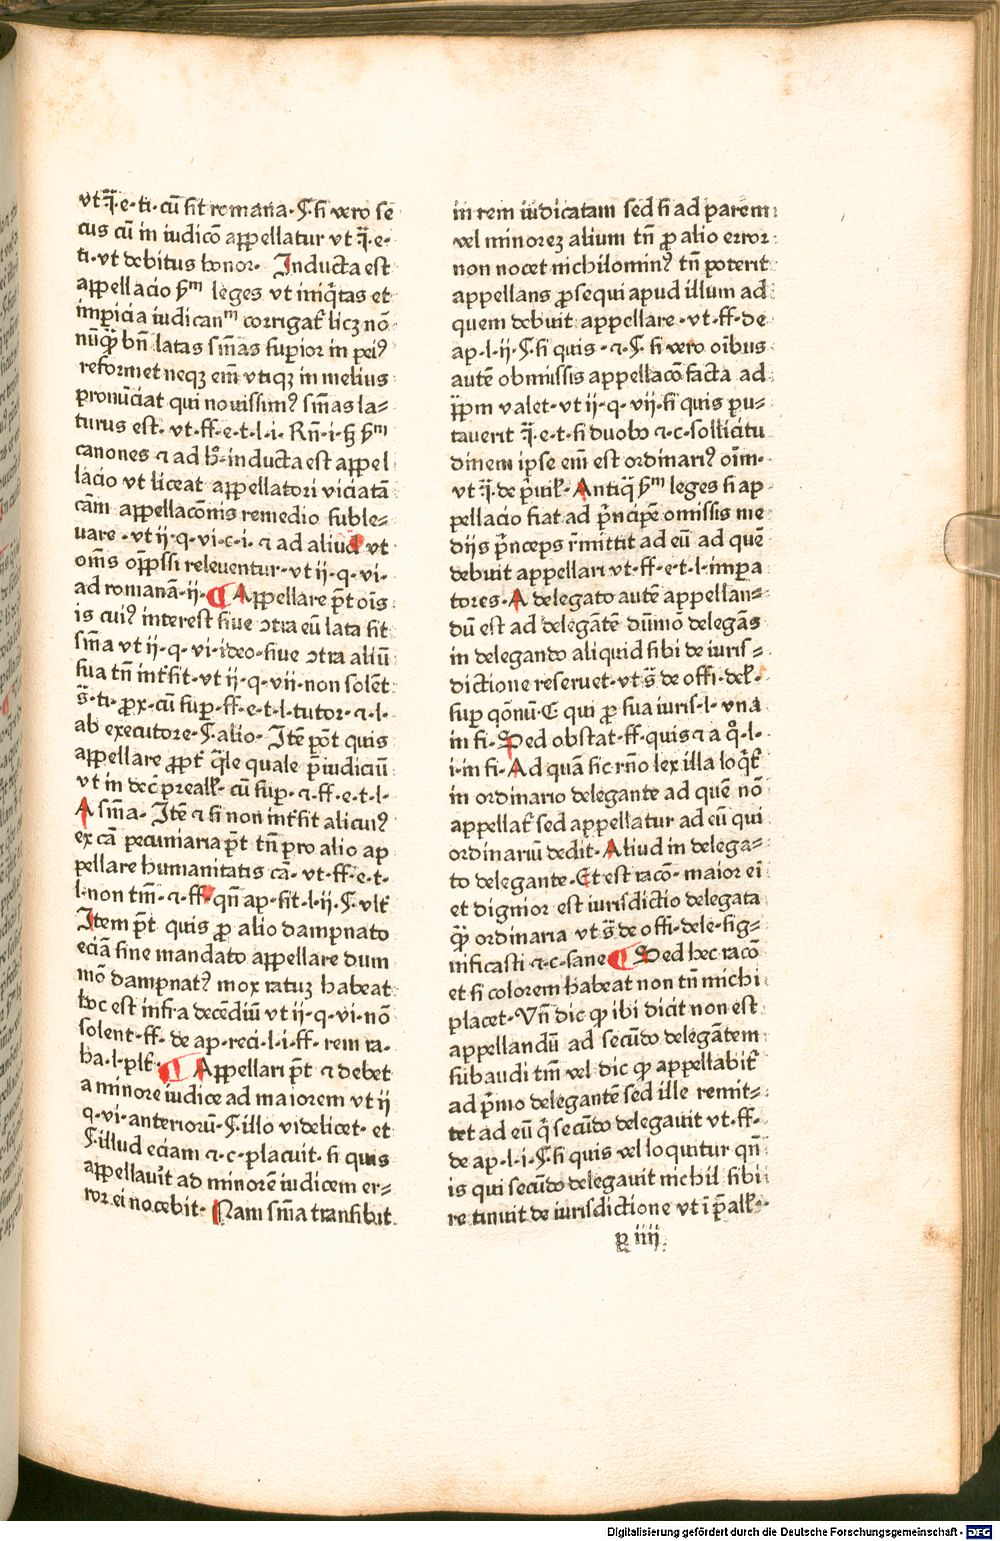 vt q̄·e·ti·cū sit romana·§·si vero se
cus cū in iudicō appellatur vt q̄·e·
ti·vt debitus honor· Inducta est
appellacio sᵐ leges vt iniq̄tas et
impicia iudicanᵐ corrigat̄ licꝫ nō
nūq̄ bn̄ latas sm̄as supior in pei⁹
reformet neqꝫ em̄ vtiqꝫ in melius
pronūciat qui nouissim⁹ sm̄as la⸗
turus est· vt·ff·e·t·l·i· Rn̄·i·ꝫ sᵐ
canones ⁊ ad h̄·inducta est appel
lacio vt liceat appellatori viciatā
cām appellacōnis remedio suble⸗
uare·vt ij·q·vi·c·i·⁊ ad aliud vt
om̄s opp̄ssi releuentur·vt ij·q·vi·
ad romanā·ij· ¶ Appellare p̄t oīs
is cui⁹ interest siue ↄtra eū lata sit
sm̄a vt ij·q·vi·ideo·siue ↄtra aliū
sua tn̄ int̄sit·vt ij·q·vij·non solēt
s̄·ti·prox·cū sup·ff·e·t·l·tutor·⁊·l·
ab executore·§·alio· Itē pōt quis
appellare ꝓpt̄ q̄le quale p̄iudiciū
vt in dec̄ preall̄·cū sup·⁊·ff·e·t·l·
A sm̄a· Itē ⁊ si non int̄sit alicui⁹
ex cā pecuniaria p̄t tn̄ pro alio ap
pellare humanitatis cā·vt·ff·e·t·
l·non tm̄·⁊·ff·qn̄ ap·sit·l·ij·§·vlt̄
Item p̄t quis ꝓ alio dampnato
eciā sine mandato appellare dum
mō dampnat⁹ mox ratuꝫ habeat
hoc est infra decēdiū vt ij·q·vi·nō
solent·ff·de ap·reci·l·i·ff·rem ra·
ha·l·plt̄· ¶ Appellari p̄t ⁊ debet
a minore iudice ad maiorem vt ij
q·vi·anteriorū·§·illo videlicet·et
§·illud eciam ⁊·c·placuit·si quis
appellauit ad minorē iudicem er⸗
ror ei nocebit· Nam sm̄a transibit
in rem iudicatam sed si ad parem
vel minoreꝫ alium tn̄ ꝓ alio error
non nocet nichilomin⁹ tn̄ poterit
appellans ꝓsequi apud illum ad
quem debuit appellare·vt·ff·de
ap·l·ij·§·si quis·⁊·§·si vero oībus
autē obmissis appellacō facta ad
ip̄m valet·vt ij·q·vij·si quis pu⸗
tauerit q̄·e·t·si duobo ⁊·c·sollicitu
dinem ipse em̄ est ordinari⁹ oīm·
vt q̄·de p̄uil̄·Antiq̄ sᵐ leges si ap
pellacio fiat ad p̄ncipē omissis me
dijs p̄nceps r̄mittit ad eū ad quē
debuit appellari vt·ff·e·t·l·impa
tores·A delegato autē appellan⸗
dū est ad delegātē dūmō delegās
in delegando aliquid sibi de iuris⸗
dictione reseruet·vt s̄ de offi·del̄·
sup qōnū·E qui ꝓ sua iuris·l·vna
in fi·Sed obstat·ff·quis ⁊ a q°·l·
i·in fi·Ad quā sic rn̄o lex illa loq̄t̄
in ordinario delegante ad quē nō
appellat̄ sed appellatur ad eū qui
ordinariū dedit·Aliud in delega⸗
to delegante·Et est racō·maior ei
et dignior est iurisdictio delegata
q̄ ordinaria vt s̄ de offi·dele·sig⸗
nificasti ⁊·c·sane ¶ Sed hec racō
et si colorem habeat non tn̄ michi
placet·Vn̄ dic ꝙ ibi dicit non est
appellandū ad secūdo delegātem
subaudi tm̄ vel dic ꝙ appellabit̄
ad p̄mo delegantē sed ille remit⸗
tet ad eū q̄ secūdo delegauit vt·ff·
de ap·l·i·§·si quis vel loquitur qn̄
is qui secūdo delegauit nichil sibi
re tinuit de iurisdictione vt ī p̄all̄·
p iiij
Digitalisierung gefördert durch die Deutsche Forschungsgemeinschaft - DFG